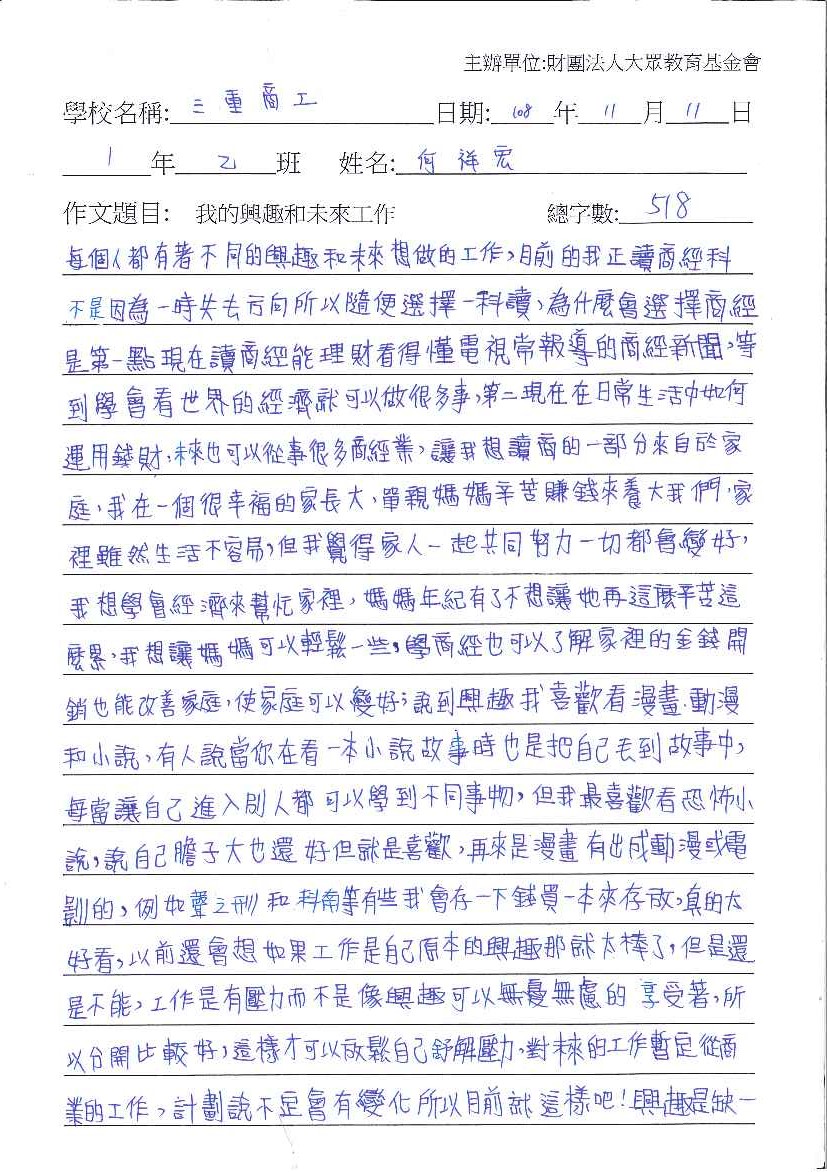 主辦單位:財團法人大眾教育基金會
學校名稱: 三重商工 日期: 108 年 11 月 11 日
1 年 乙 班 姓名: 何祥宏
作文題目: 我的興趣和未來工作 總字數: 518
每個人都有著不同的興趣和未來想做的工作,目前的我正讀商經科
不是因為一時失去方向所以隨便選擇一科讀,為什麼會選擇商經
是第一點現在讀商經能理財看得懂電視常報導的商經新聞,等
到學會看世界的經濟就可以做很多事,第二現在在日常生活中如何
運用錢財,未來也可以從事很多商經業,讓我想讀商的一部分來自於家
庭,我在一個很幸福的家長大,單親媽媽辛苦賺錢來養大我們,家
裡雖然生活不容易,但我覺得家人一起共同努力一切都會變好,
我想學會經濟來幫忙家裡,媽媽年紀有了不想讓她再這麼辛苦這
麼累,我想讓媽媽可以輕鬆一些,學商經也可以了解家裡的金錢開
銷也能改善家庭,使家庭可以變好;說到興趣我喜歡看漫畫.動漫
和小說,有人說當你在看一本小說故事時也是把自己丟到故事中,
每當讓自己進入別人都可以學到不同事物,但我最喜歡看恐怖小
說,說自己膽子大也還好但就是喜歡,再來是漫畫有出成動漫或電
劇的,例如聲之形和科南等有些我會存一下錢買一本來存放,真的太
好看,以前還會想如果工作是自己原本的興趣那就太棒了,但是還
是不能,工作是有壓力而不是像興趣可以無憂無慮的享受著,所
以分開比較好,這樣才可以放鬆自己舒解壓力,對未來的工作暫定從商
業的工作,計劃說不定會有變化所以目前就這樣吧!興趣是缺一